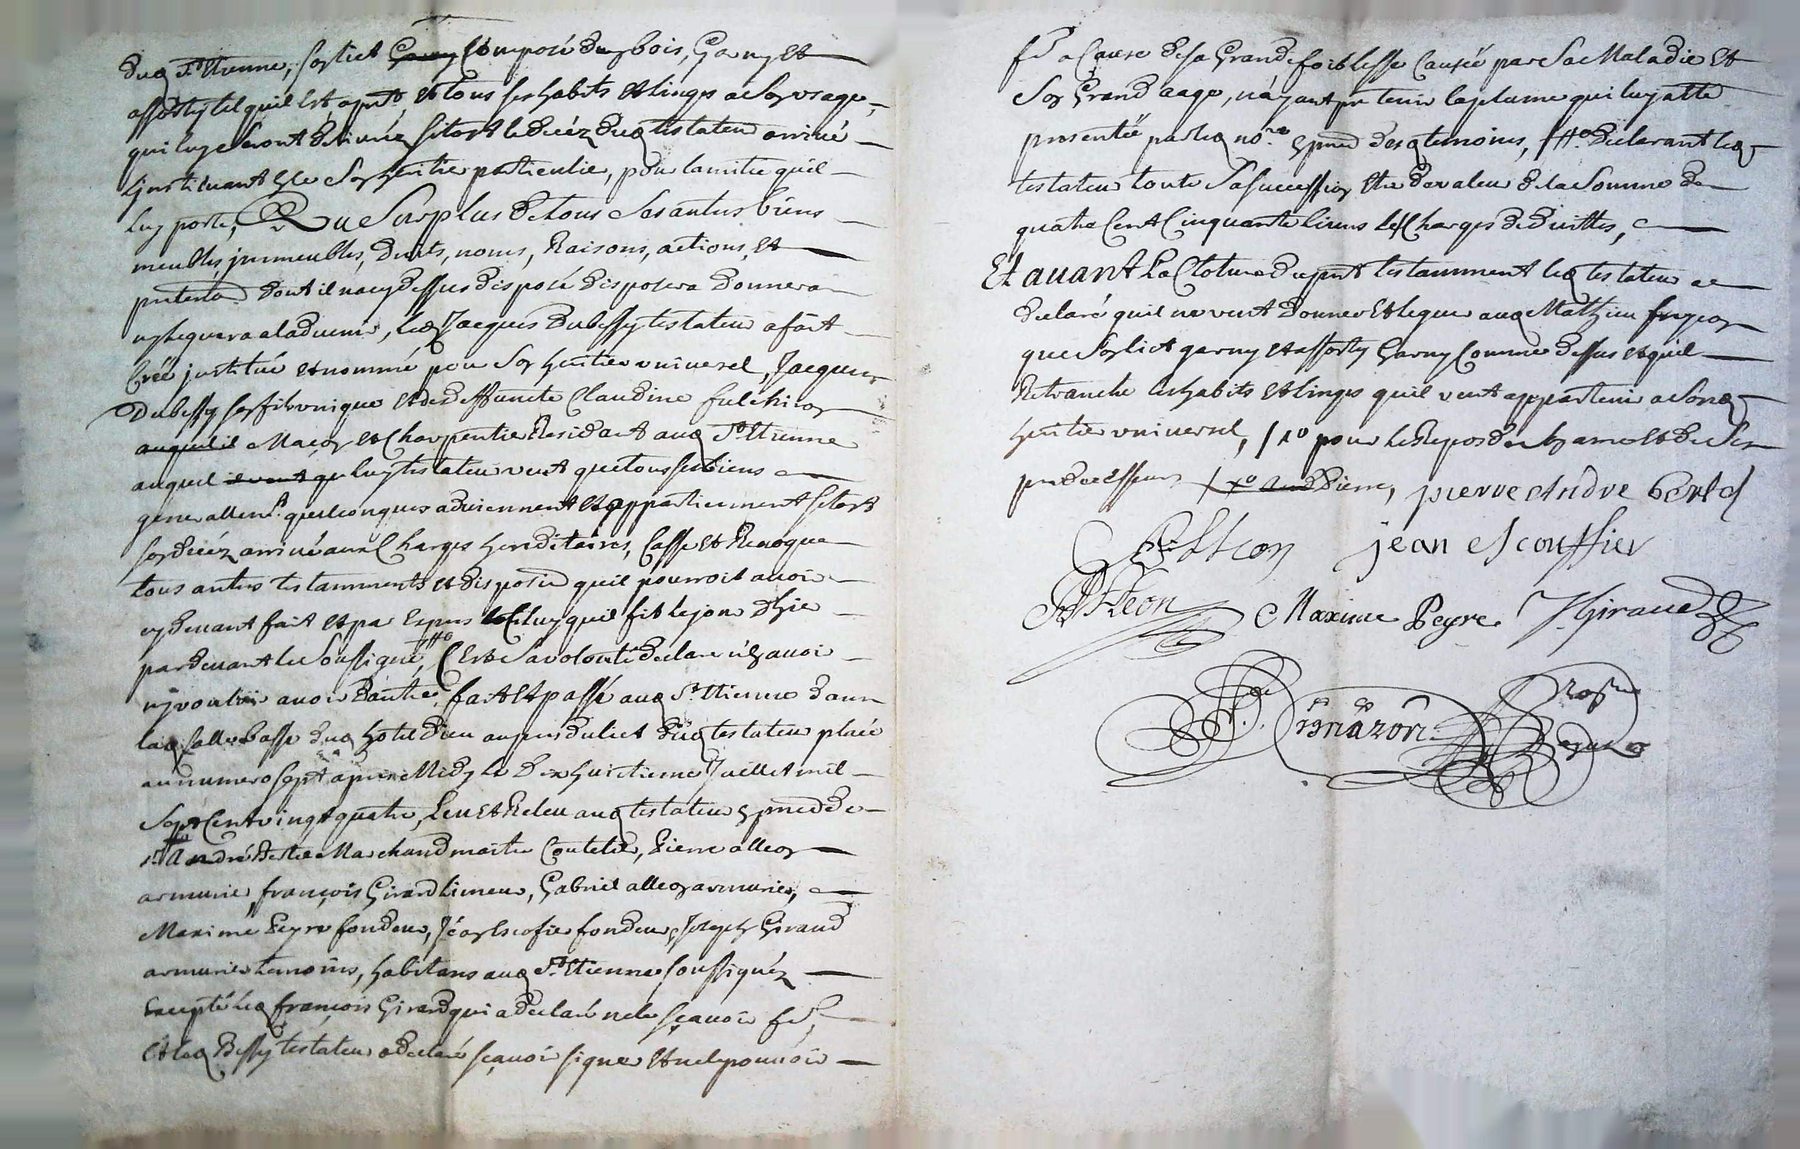 dud St Etienne, son lict Garny Composé du bois, Garny et
assorty tel quil est apnt et tous ses habits et linges a son usage,
qui luy seront delivréz sitost le decéz dud testateur arrivé
linstituant son heritier particulier, pour lamitie quil
luy porte, Et Au Surplus de tous Ses autres biens
meubles, jmmeubles, droits, noms, Raisons, actions, Et
pretend dont il na cy dessus disposé disposera donnera
ny leguera a ladvenir, led Jacques Dubessy testateur a fait
Créé jnstitué et nommé pour Son heritier universel, Jacques
Dubessy son fils unique et de deffuncte Claudine fulchiron
auquel il Maçon et Charpentier Residant aud St Etienne
auquel il veut que luy testateur veut que tous ses biens
generallemt quelconques adviennent et appartiennent sitost
son decéz arrivé aux Charges hereditaires, Casse et Revoque
tous autres testamments et disposion quil pourroit avoir
cy devant fait et par Expres Celuy quil fit le jour dhier
pardevant les Soussigné, Cest Sa volonté declare nen avoir
ny vouloir avoir Dautre, fait et passé aud St Etienne dans
lad salle basse dud hotel dieu au pres du lict dud testateur placé
au numero sept apres Midy le Dix huictieme Juillet mil
Sept Cent vingt quatre, leu et Releu aud testateur en pnce de
sr André Berlie Marchand maitre Coutelier, Pierre alleon
armurier, françois Girard limeur, Gabriel alleon armurier,
Maxime Peyre fondeur, Jean Escofier fondeur, Joseph Giraud
armurier temoins, habitans aud St Etienne soussignéz
Excepté led françois Girard qui a declaré ne le sçavoir fe,
Et led Bessy testateur a declaré sçavoir signer et ne le pouvoir
fe a Cause de sa Grande foiblesse Causée par Sa Maladie et
Son Grand aage, nayant pu tenir la plume qui luy a ete
presentée par led nore en pnce desd temoins, declarant led
testateur toute Sa succession etre de valeur de la Somme de
quatre Cent Cinquante livres les Charges deduittes,
Et avant La Cloture du pnt testamment led testateur a
declaré quil ne veut donner et leguer aud Mathieu
que Son lict garny et assorty Garny Comme dessus et quil
Retranche les habits et linges quil veut appartenir a Sond
heritier universel, pour le Repos de son ame et de Ses
predecesseurs pierre, pierre Andre berlié
Alleon jean escouffier
Alleon Maxime Peyre J. Giraud
Grimazon